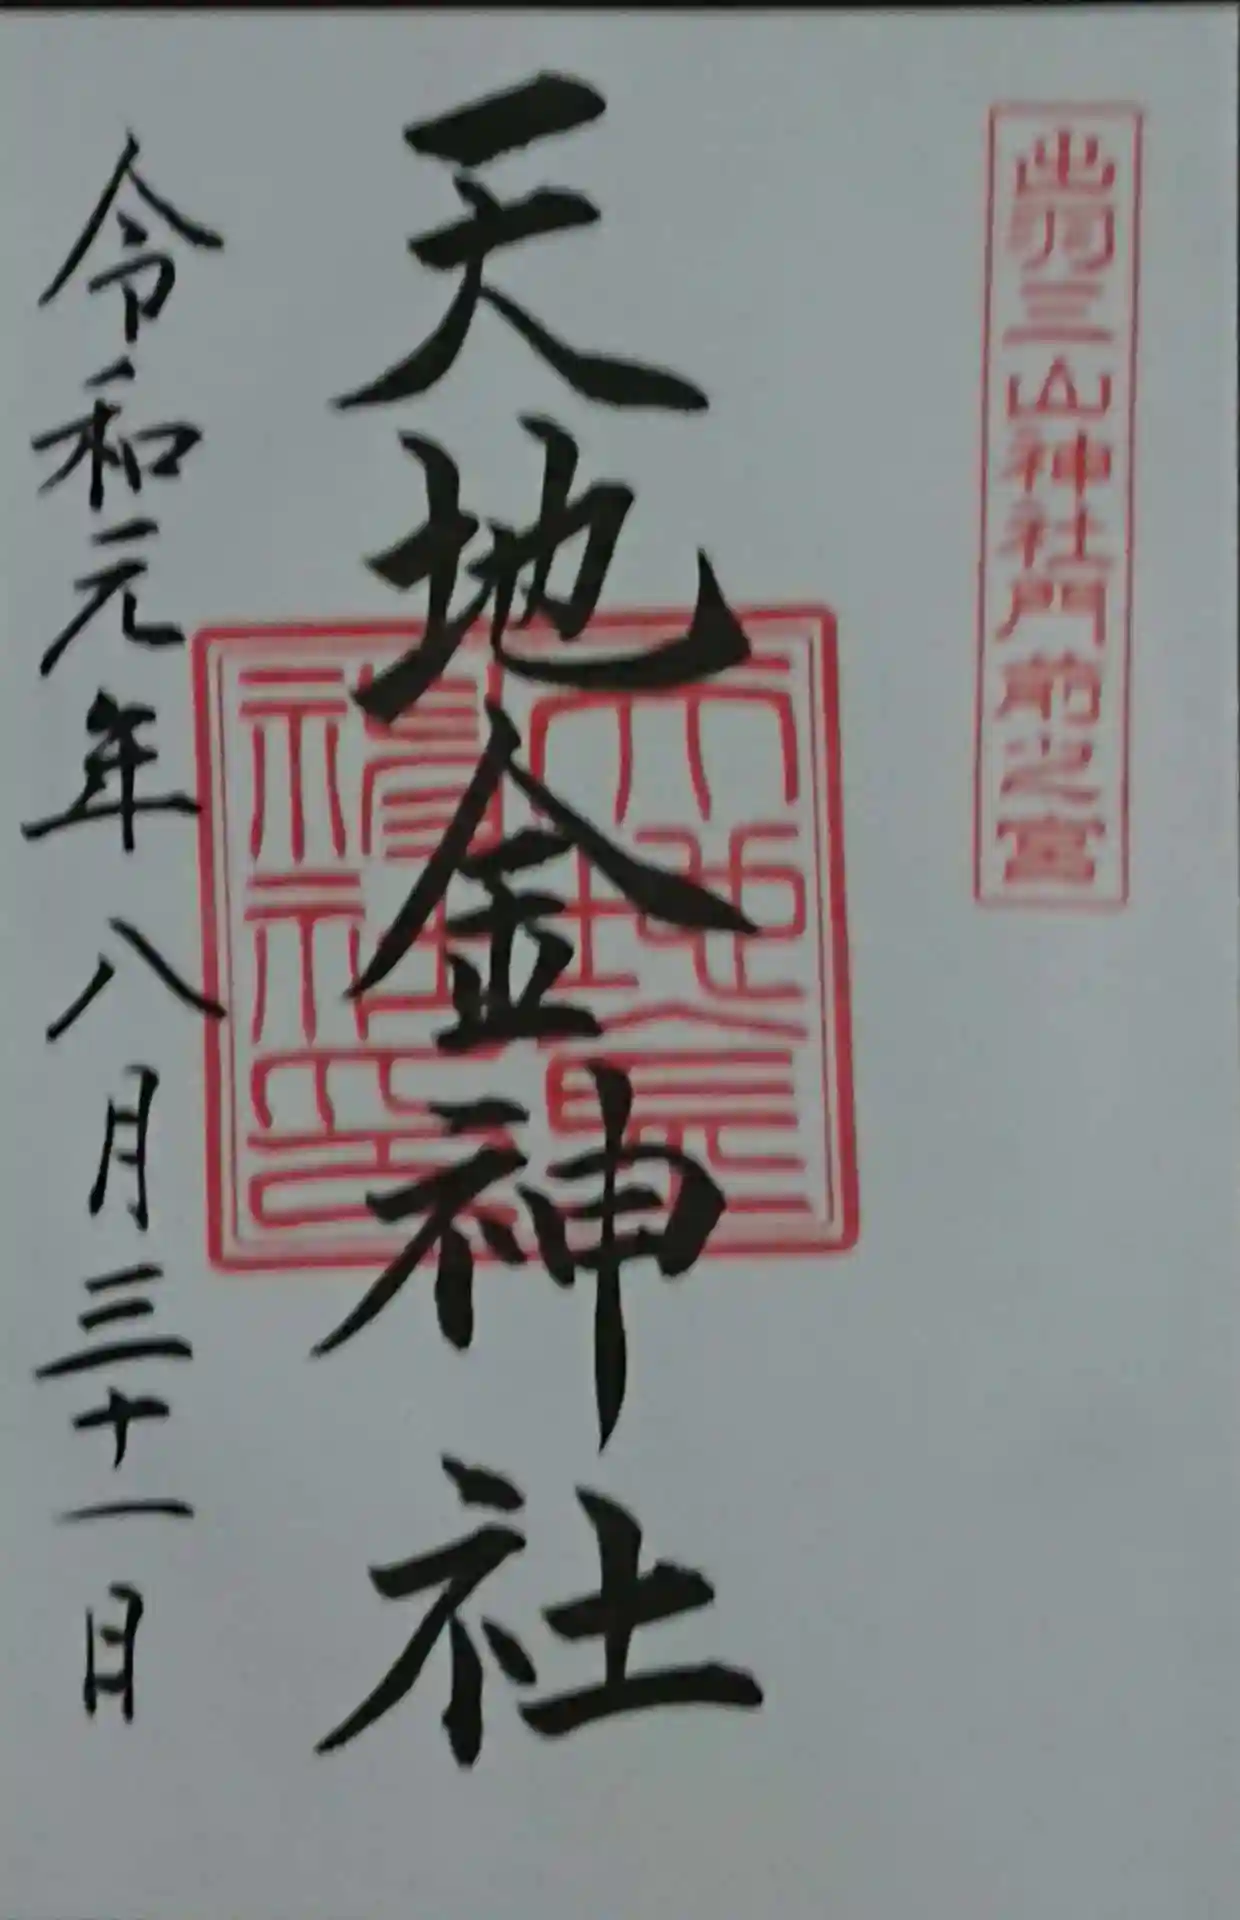 出羽三山神社門前之宮
天地金神社
天地金神社印
令和元年八月三十一日